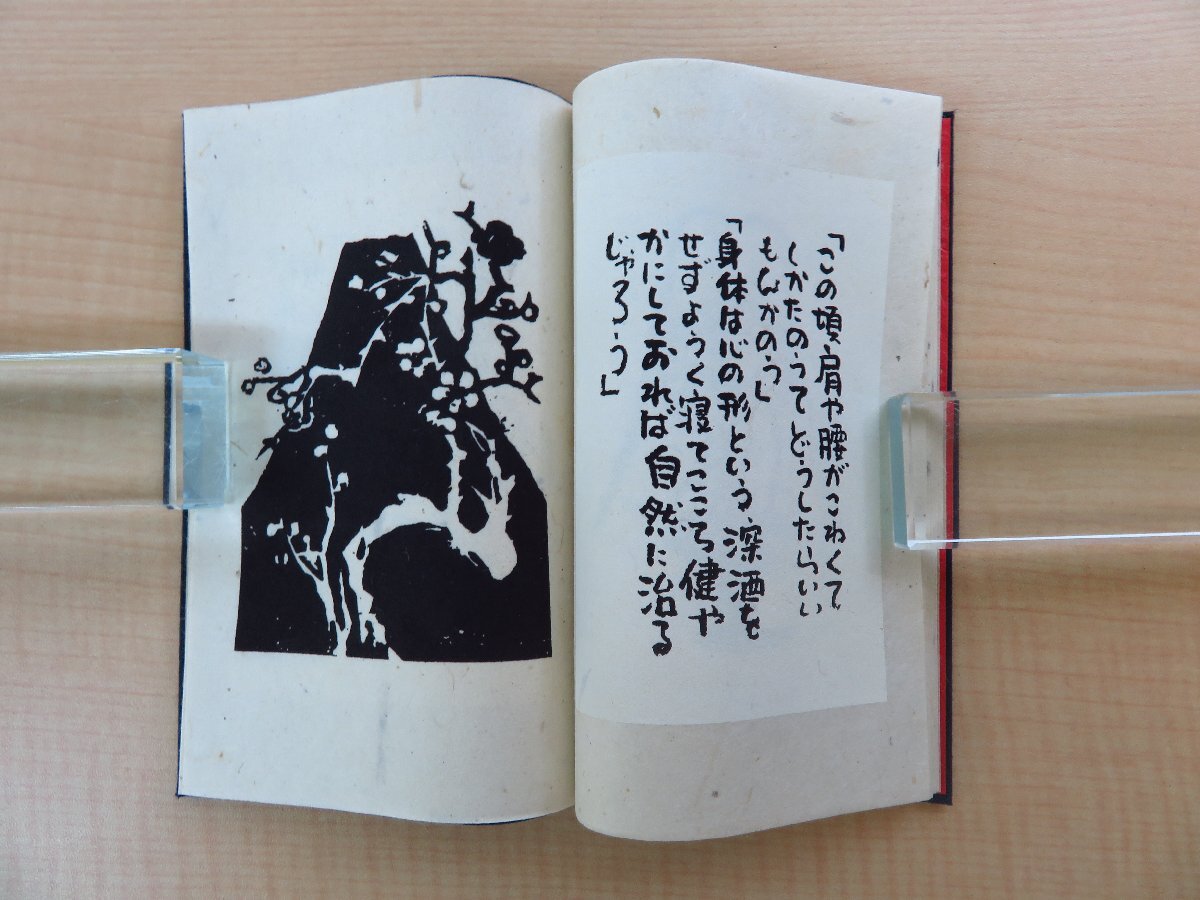 「この頃、肩や腰がこわくて
しかたのうてどうしたらいい
もんかのう」
「身体は心の形という、深酒を
せずようく寝てこころ健や
かにしておれば自然に治る
じゃろう」